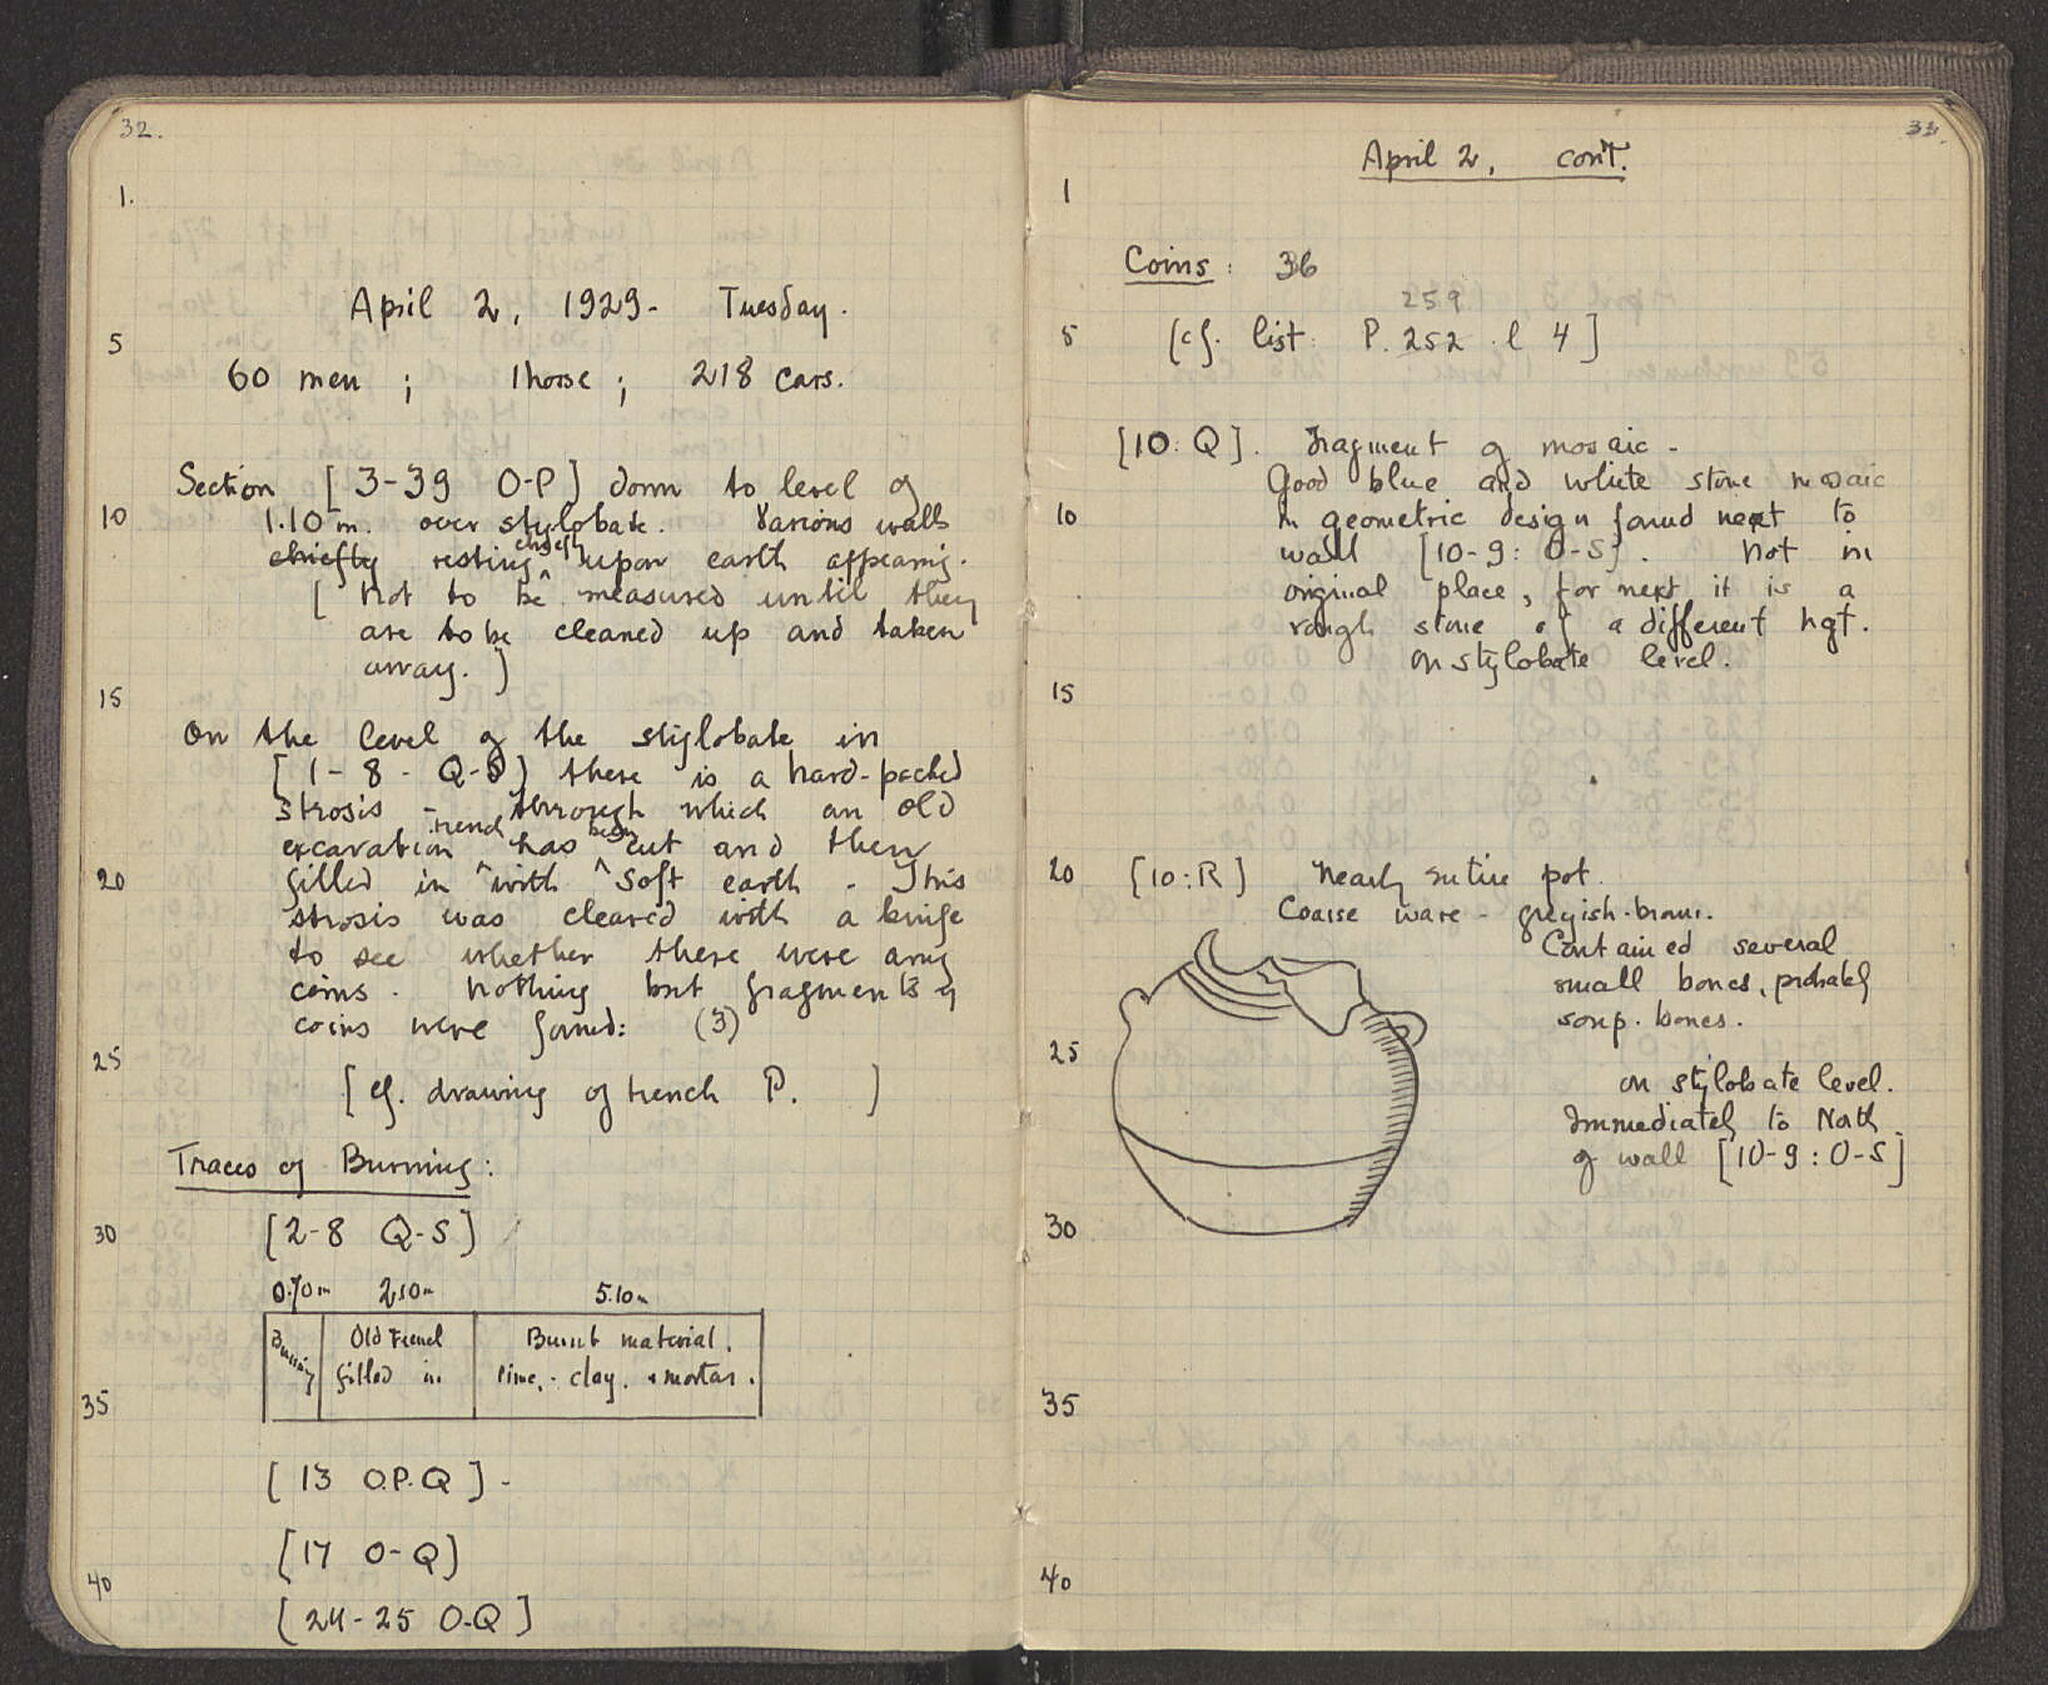 32.
1.
April 2, 1929- Tuesday.
5
60 men ; 1 horse ; 218 cars.
Section [3-39 O-P] down to level of
10 1.10 m. over stylobate. Various walls
chiefly resting chiefly upon earth appearing.
[Not to be measured until they
are to be cleaned up and taken
away.]
15
On the level of the stylobate in
[1-8 - Q-S] there is a hard-packed
strosis - through which an old
excavation trench has been cut and then
20 filled in with soft earth - This
strosis was cleared with a knife
to see whether there were any
coins. Nothing but fragments of
coins were found: (3)
25
[cf. drawing of trench P. ]
Traces of Burning:
30 [2-8 Q-S]
0.70m 2.10m 5.10m
Burning Old trench Burnt material.
filled in lime, - clay. & mortar.
35
[13 O.P.Q] -
[17 O-Q]
40
[24-25 O-Q]
33.
April 2, con't.
1
Coins: 36
259
5 [cf. list: P. 252 . l 4]
[10:Q]. Fragment of mosaic -
Good blue and white stone mosaic
10 in geometric design found next to
wall [10-9: O-S]. Not in
original place, for next it is a
rough stone of a different hgt.
on stylobate level.
15
20 [10:R] Nearly entire pot.
Coarse ware - greyish-brown.
Contained several
small bones, probably
soup-bones.
25
on stylobate level.
Immediately to North
of wall [10-9: O-S]
30
35
40